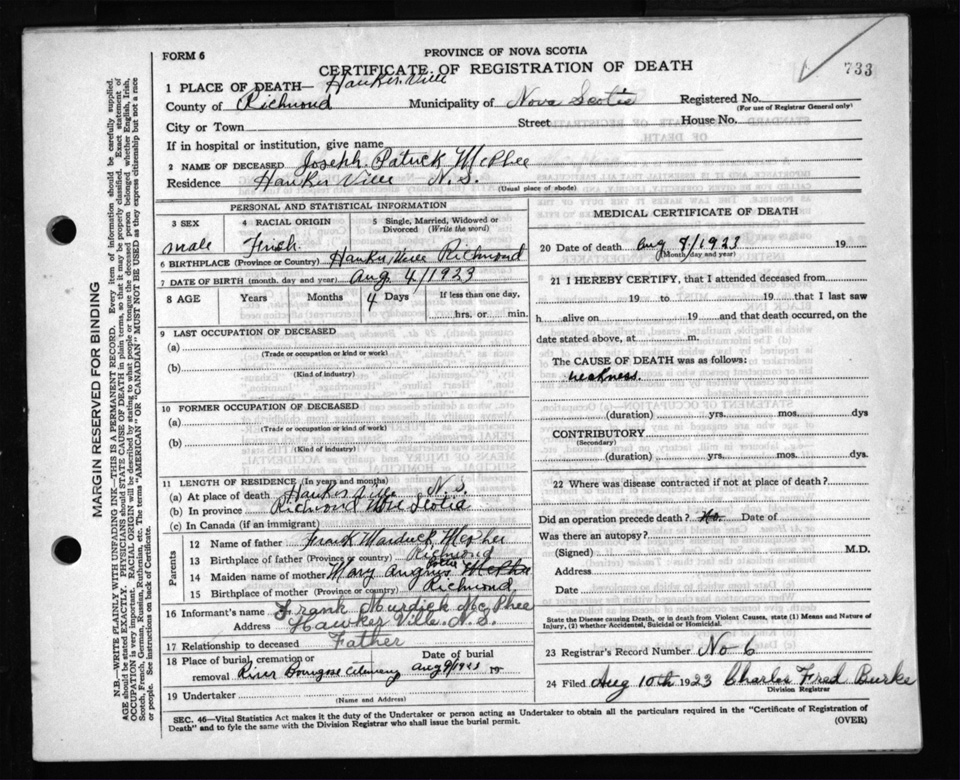 FORM 6
PROVINCE OF NOVA SCOTIA
CERTIFICATE OF REGISTRATION OF DEATH
733
1 PLACE OF DEATH— Hawker Ville
County of Richmond Municipality of Nova Scotia Registered No.
(For use of Registrar General only)
City or Town Street House No.
If in hospital or institution, give name
2 NAME OF DECEASED Joseph Patrick McPhee
Residence Hawker Ville N.S.
(Usual place of abode)
PERSONAL AND STATISTICAL INFORMATION
3 SEX 4 RACIAL ORIGIN 5 Single, Married, Widowed or Divorced (Write the word)
male
6 BIRTHPLACE (Province or Country) Hawker Ville Richmond
7 DATE OF BIRTH (month, day and year) Aug 4/1923
8 AGE Years Months 4 Days If less than one day,
hrs. or min.
9 LAST OCCUPATION OF DECEASED
(a)
(Trade or occupation or kind or work)
(b)
(Kind of industry)
10 FORMER OCCUPATION OF DECEASED
(a)
(Trade or occupation or kind of work)
(b)
(Kind of industry)
11 LENGTH OF RESIDENCE (in Years and months)
(a) At place of death Hawker Ville N.S.
(b) In province Richmond Nova Scotia
(c) In Canada (if an immigrant)
Parents
12 Name of father Frank Murdick Mcphee
13 Birthplace of father (Province or country) Richmond
14 Maiden name of mother Mary
15 Birthplace of mother (Province or country) Richmond
16 Informant's name Frank Murdick Mc Phee
Address Hawker Ville N.S.
17 Relationship to deceased Father
18 Place of burial, cremation or removal River Bourgeois Cemetery Date of burial Aug 9/1923 19
19 Undertaker
(Name and Address)
MEDICAL CERTIFICATE OF DEATH
20 Date of death Aug 8/1923 19
(Month/day and year)
21 I HEREBY CERTIFY, that I attended deceased from
19 to 19 that I last saw
h alive on 19 and that death occurred, on the
date stated above, at m.
The CAUSE OF DEATH was as follows:
weakness.
(duration) yrs. mos. dys
CONTRIBUTORY
(Secondary)
(duration) yrs. mos. dys.
22 Where was disease contracted if not at place of death?
Did an operation precede death? No. Date of
Was there an autopsy?
(Signed) M.D.
Address
Date
State the Disease causing Death, or in death from Violent Causes, state (1) Means and Nature of
Injury, (2) whether Accidental, Suicidal or Homicidal.
23 Registrar's Record Number No 6
24 Filed Aug 10th 1923 Charles Fred Burke
Division Registrar
SEC. 46—Vital Statistics Act makes it the duty of the Undertaker or person acting as Undertaker to obtain all the particulars required in the "Certificate of Registration of
Death" and to fyle the same with the Division Registrar who shall issue the burial permit.
(OVER)
MARGIN RESERVED FOR BINDING
N.B.—WRITE PLAINLY WITH UNFADING INK—THIS IS A PERMANENT RECORD. Every item of information should be carefully supplied.
AGE should be stated EXACTLY. PHYSICIANS should STATE CAUSE OF DEATH in plain terms, so that it may be properly classified. Exact statement of
OCCUPATION is very important. RACIAL ORIGIN will be described by stating to what people or tongue the deceased person belonged, whether English, Irish,
Scotch, French, German, Russian, Ruthenian, etc. The terms "AMERICAN" OR "CANADIAN" MUST NOT BE USED as they express citizenship but not a race
or people. See instructions on back of Certificate.